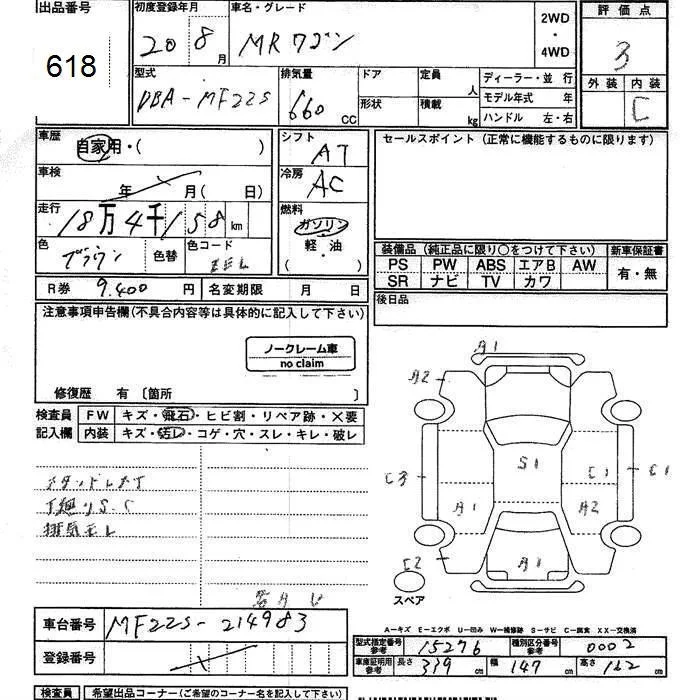 出品番号 初度登録年月 車名・グレード 2WD・4WD 評価点
618 20 8月 MRワゴン 3
型式 排気量 ドア 定員 人 ディーラー・並行 外装 内装
DBA-MF22S 660 CC 形状 積載 kg モデル年式 年 C
ハンドル 左・右
車歴 自家用・( ) シフト AT セールスポイント(正常に機能するものに限ります)
車検 年 月( 日) 冷房 AC
走行 18万4千158km 燃料 ガソリン
色 ブラウン 色替 色コード ZEL 軽・油 ( )
装備品(純正品に限り○をつけて下さい) 新車保証書
PS PW ABS エアB AW 有・無
SR ナビ TV カワ
R券 9,400円 名変期限 月 日 後日品
注意事項申告欄(不具合内容等は具体的に記入して下さい)
ノークレーム車
no claim
修復歴 有 〔箇所 〕
検査員 FW キズ・飛石・ヒビ割・リペア跡・×要
記入欄 内装 キズ・汚レ・コゲ・穴・スレ・キレ・破レ
下廻りS.C
排気モレ
A1
A2
S1
C3 A1 C1 C1
A2
C2 A1
スペア
A-キズ E-エクボ U-凹み W-補修跡 S-サビ C-腐食 XX-交換済
車台番号 MF22S-214983
登録番号
型式指定番号 参考 15276 種別区分番号 参考 0002
車庫証明用 参考 長さ 339cm 幅 147cm 高さ 162cm
検査員 希望出品コーナー(ご希望のコーナー名を記入して下さい)